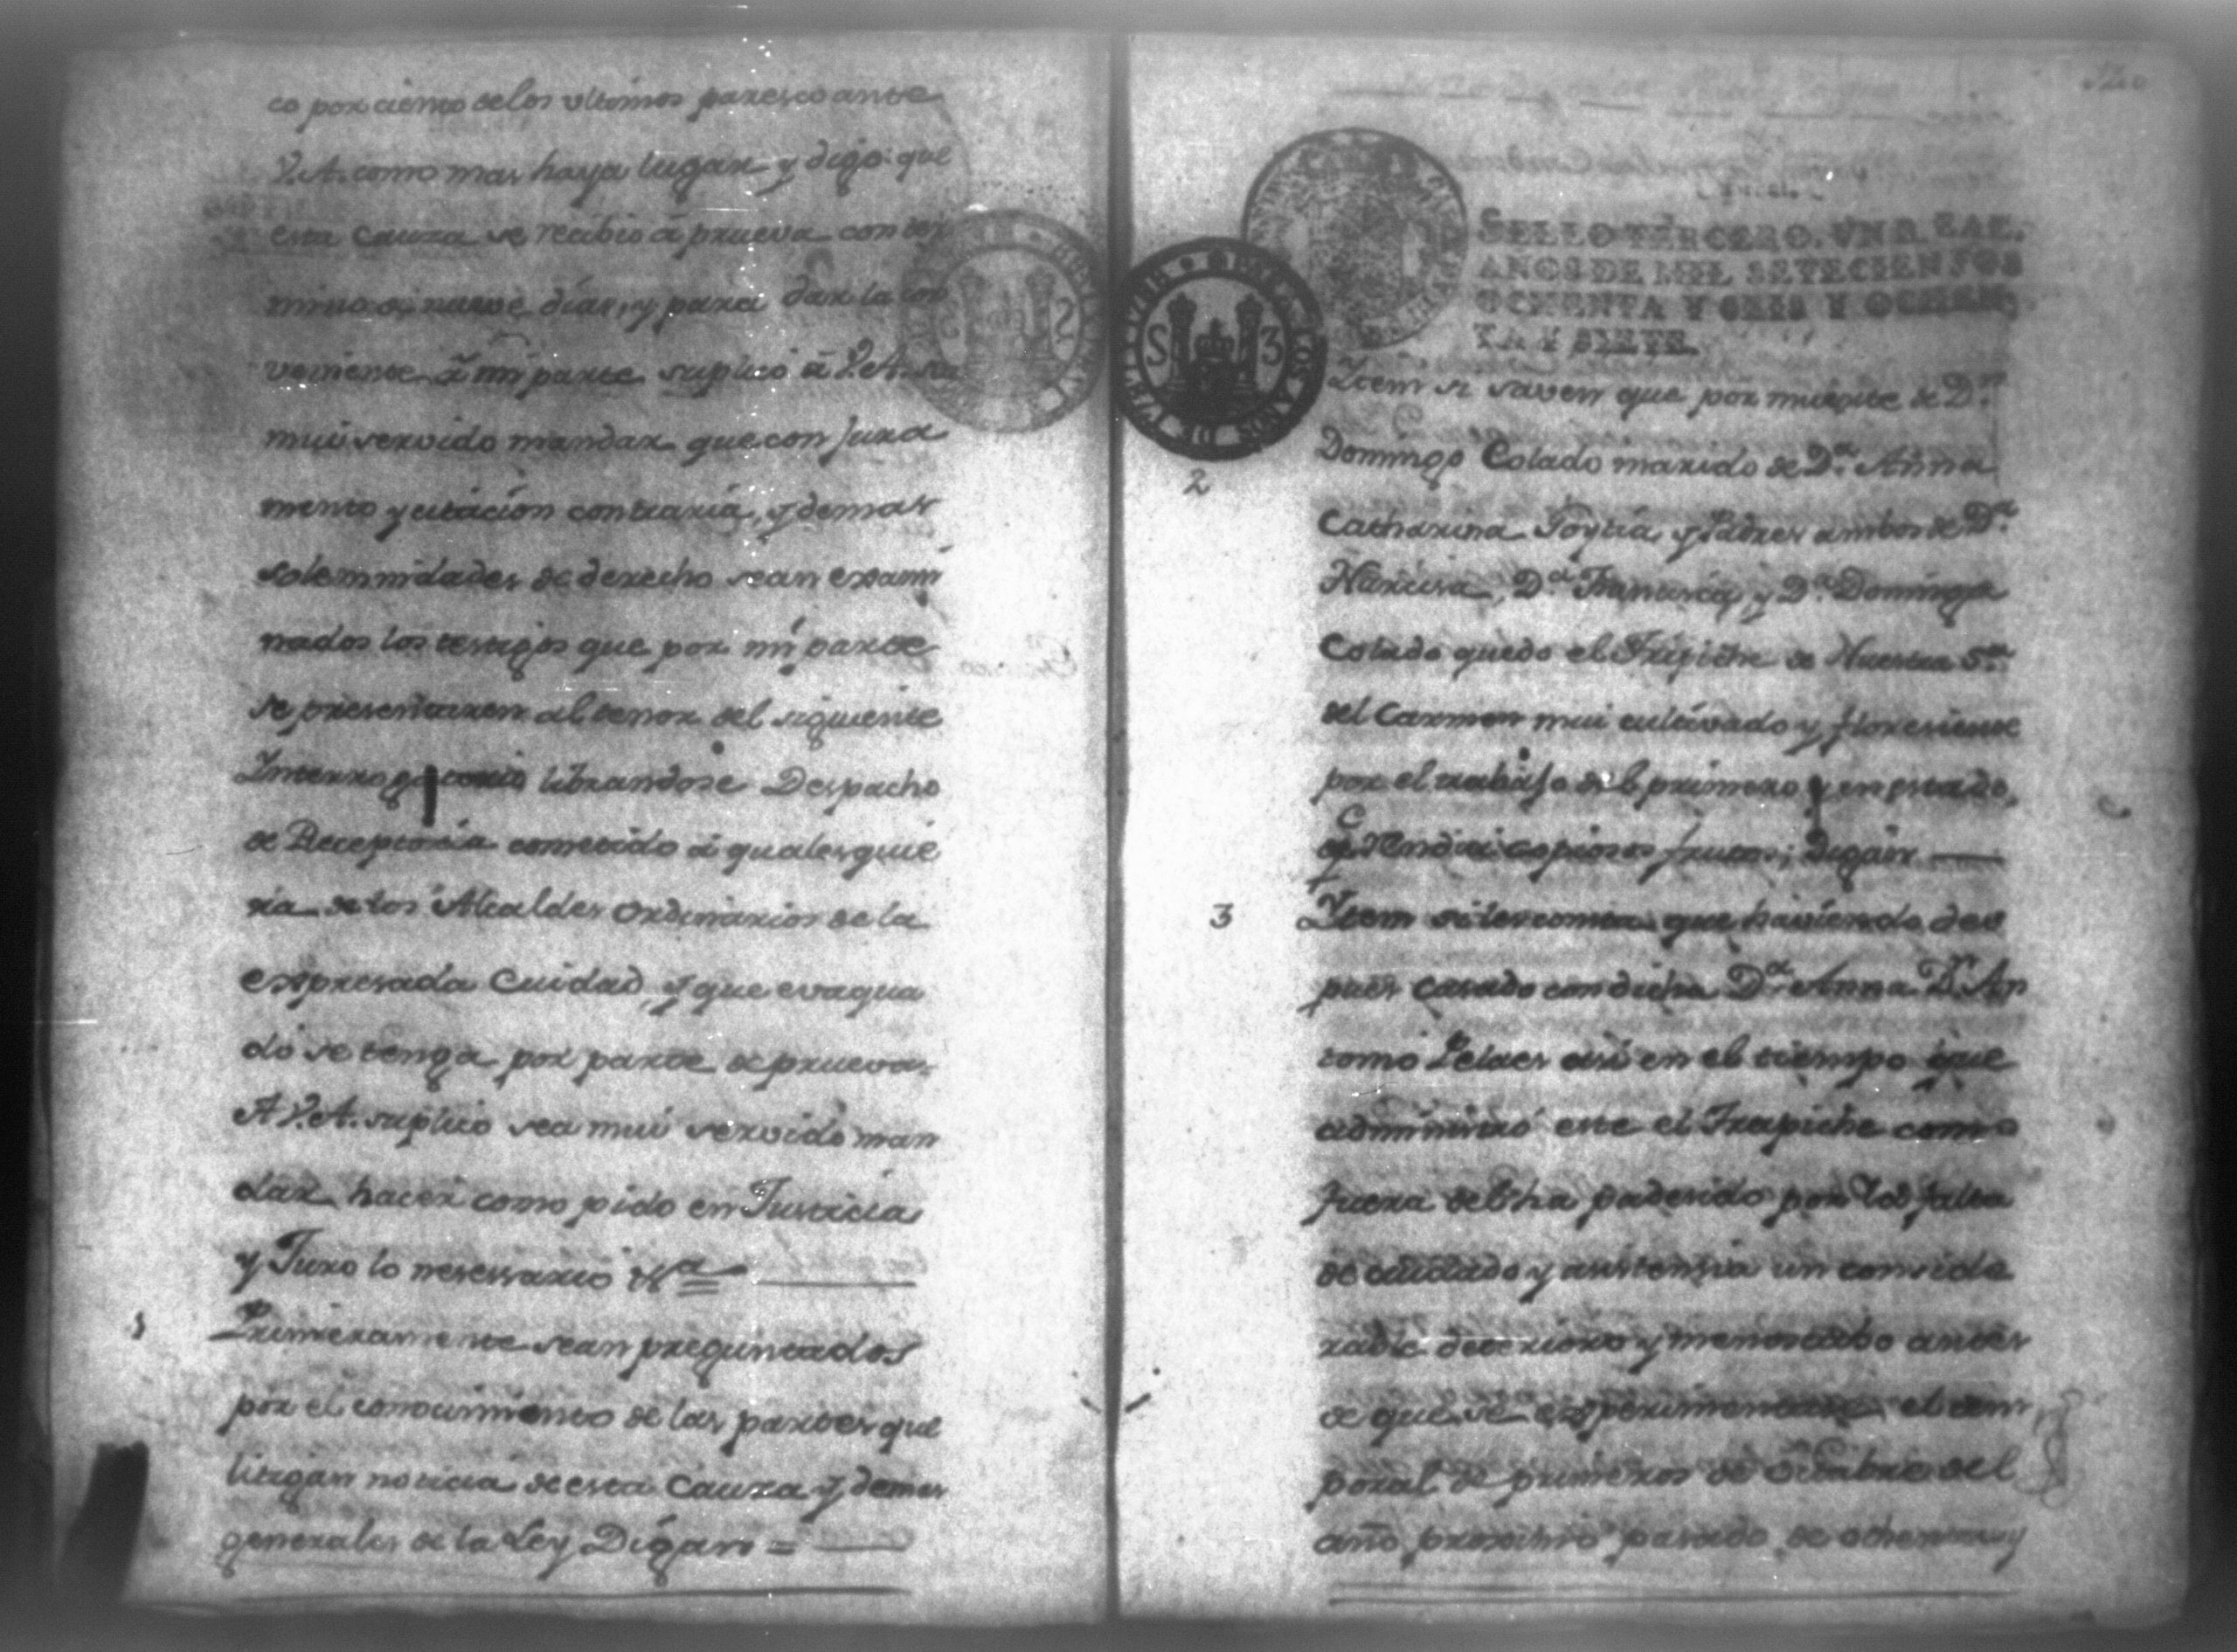 co por ciento de los ultimos paresco ante
V.A. como mas haya lugar y digo: que
esta Cauza se recibio â prueva con ter
mino de nueve dias, y para dar la con
veniente â mi parte suplico â V.A. sea
mui servido mandar que con Jura
mento y citacion contraria, y demas
solemnidades de derecho sean exami
nados los testigos que por mi parte
se presentaren al tenor del siguiente
Interrogatorio librandose Despacho
de Receptoria cometido â qualesquie
ra de los Alcaldes Ordinarios de la
expresada Ciudad, y que evaqua
do se tenga por parte de prueva=
A V.A. suplico sea mui servido man
dar hacer como pido en Justicia
y Juro lo nesessario &a
1 Primeramente sean preguntados
por el conocimiento de las partes que
litigan noticia de esta Cauza y demas
generales de la Ley Digan =
SELLO TERCERO. VN R EAL.
AÑOS DE MIL SETECIENTOS
OCHENTA Y SEIS Y OCHEN-
TA Y SIETE.
PARA LOS AÑOS DE
S 3
2 Item si saven que por muerte de Dn
Domingo Colado marido de Da. Anna
Catharina Foytia, y Padres ambos de Da.
Narcisa, Da. Francisca, y Da. Dominga
Colado quedo el Trapiche de Nuestra Sra.
del Carmen mui cultivado y floresiente
por el trabajo del primero y en estado,
de rendir copiosos frutos; Digan
3 Item si les consta que haviendo des
pues casado con dicha Da. Anna Dn. An
tonio Pelaes asi en el tiempo que
administró este el Trapiche como
fuera del ha padesido por la falta
de cuidado y asistensia un conside
rable deterioro y menoscabo antes
de que se experimentara el tem
poral de primeros de Octubre del
año proximo pasado de ochenta y